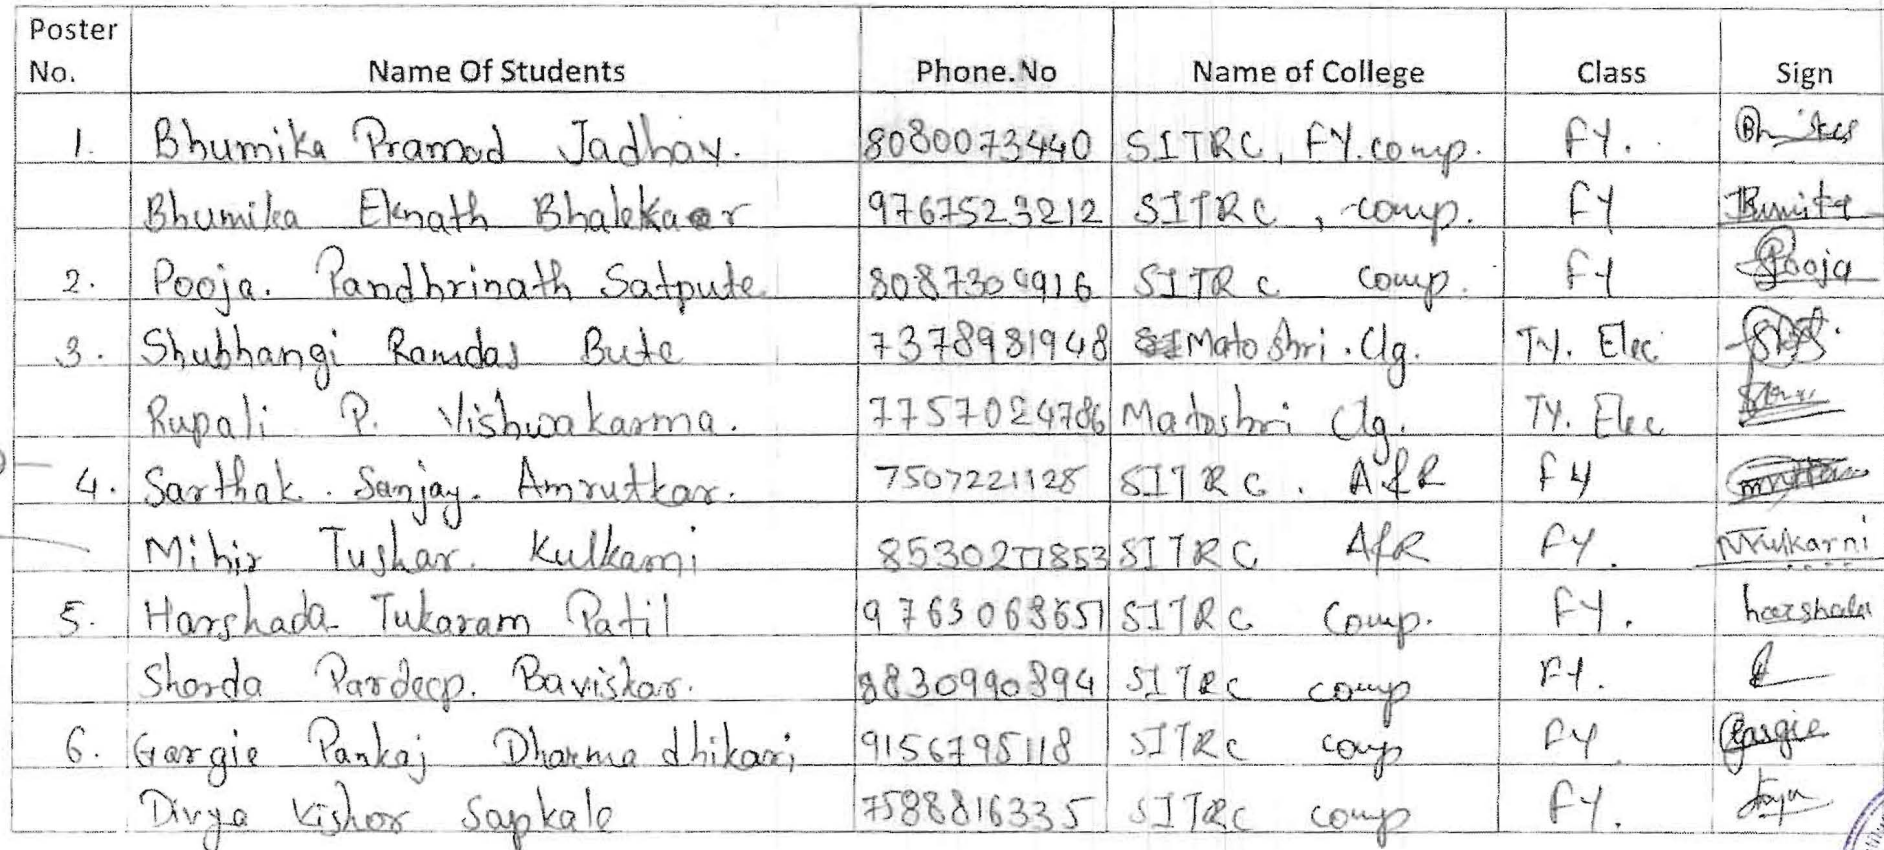 Poster No. Name Of Students Phone.No Name of College Class Sign
1. Bhumika Pramod Jadhav. 8080073440 SITRC, FY.comp. FY.
Bhumika Eknath Bhalekar 9767523212 SITRC, comp. FY
2. Pooja. Pandhrinath Satpute 8087309916 SITRC comp. FY Pooja
3. Shubhangi Ramdas Bute 7378981948 Matoshri. Clg. TY. Elec
Rupali P. Vishwakarma. 7757024786 Matoshri Clg. TY. Elec
4. Sarthak. Sanjay. Amrutkar. 7507221128 SITRC. A&R FY
Mihir Tushar. Kulkarni 8530277853 SITRC A&R FY. Mkulkarni
5. Harshada Tukaram Patil SITRC Comp. FY. harshada
Shorda Pardeep. Baviskar. 8830990894 SITRC comp FY.
6. Gargie Pankaj Dharmadhikari 9156795118 SITRC comp FY Gargie
Divya Kishor Sapkale 7588816335 SITRC comp FY.